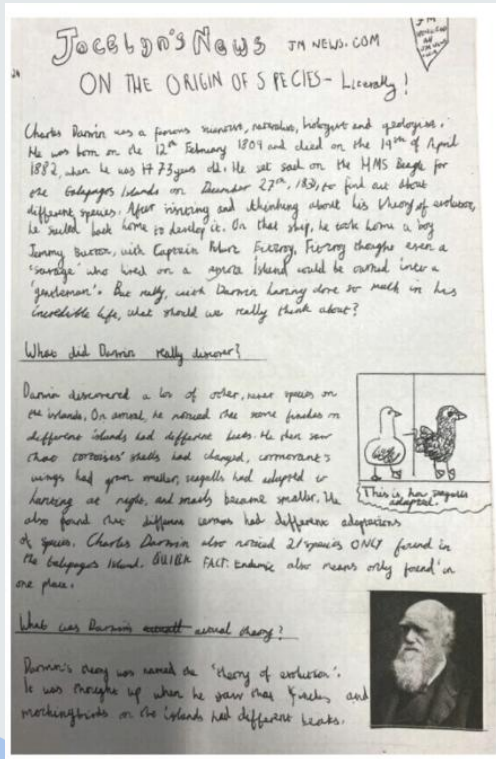 Jocelyn's News JM NEWS.COM
JM
ON THE ORIGIN OF SPECIES - Literally!
Charles Darwin was a famous scientist, naturalist, biologist and geologist.
He was born on the 12th February 1809 and died on the 19th of April
1882, when he was 73 years old. He set sail on the HMS Beagle for
the Galapagos Islands on December 27th, 1831, to find out about
different species. After visiting and thinking about his theory of evolution,
he sailed back home to develop it. On that ship, he took home a boy
Jemmy Button, with Captain Fitzroy, Fitzroy thought even a
'savage' who lived on a island could be turned into a
'gentleman'. But really, with Darwin having done so much in his
incredible life, what should we really think about?
What did Darwin really discover?
Darwin discovered a lot of other, newer species on
the islands. On arrival, he noticed that some finches on
different islands had different beaks. He then saw
that tortoises' shells had changed, cormorant's
wings had grown smaller, seagulls had adapted to
hunting at night, and snails became smaller. He
also found that different had different adaptations
of species. Charles Darwin also noticed 21 species ONLY found in
the Galapagos Island. QUICK FACT: Endemic also means only found in
one place.
This is how seagulls
adapted.
What was Darwin's actual theory?
Darwin's theory was named the 'theory of evolution'.
It was thought up when he saw that finches and
mockingbirds on the islands had different beaks.